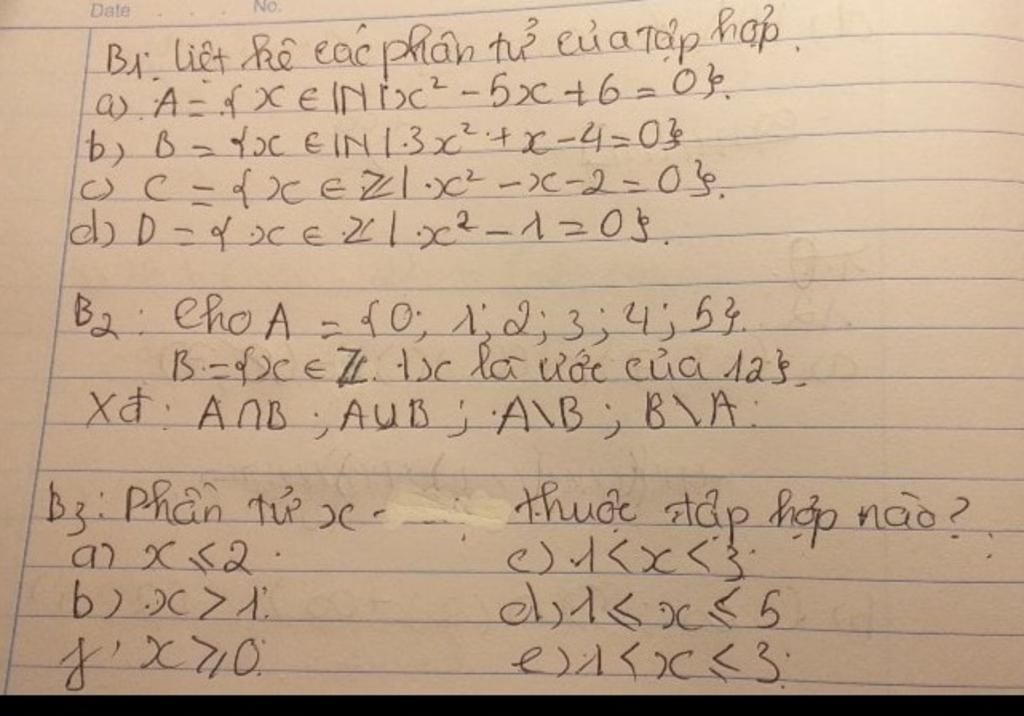 Date No.
B1: Liệt kê các phần tử của tập hợp.
a) A = {x ∈ ℕ | x² - 5x + 6 = 0}.
b) B = {x ∈ ℕ | 3x² + x - 4 = 0}
c) C = {x ∈ ℤ | x² - x - 2 = 0}.
d) D = {x ∈ ℤ | x² - 1 = 0}.
B2: Cho A = {0; 1; 2; 3; 4; 5}.
B = {x ∈ ℤ | x là ước của 12}.
Xđ: A∩B; A∪B; A\B; B\A.
B3: Phần tử x thuộc tập hợp nào?
a) x ≤ 2 c) 1 < x < 3
b) x > 1 d) 1 ≤ x ≤ 5
f, x ≥ 0 e) 1 < x ≤ 3